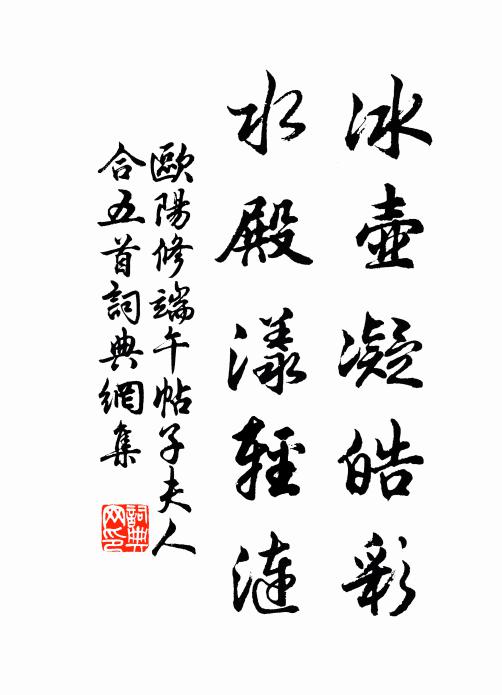 冰壺凝皓彩
水殿漾輕漣
歐陽修端午帖子夫人
合五首詞典網集
詞典
网印